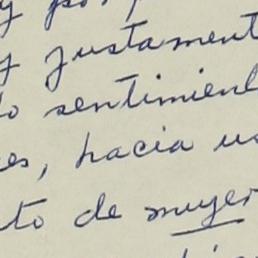 y justament
sentimient
es, hacia us
to de muyer